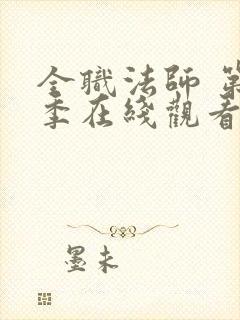 全職法師 第
季在綫觀看
墨未